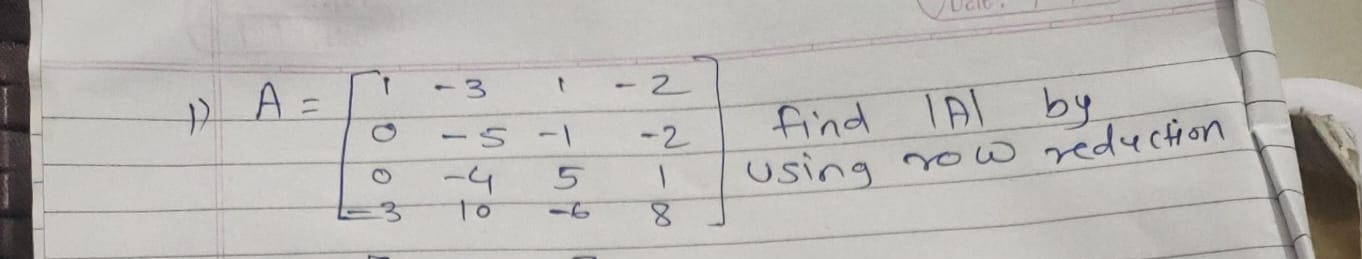 1) A = [ 1 -3 1 -2
0 -5 -1 -2
0 -4 5 1
-3 10 -6 8 ]
find |A| by
using row reduction